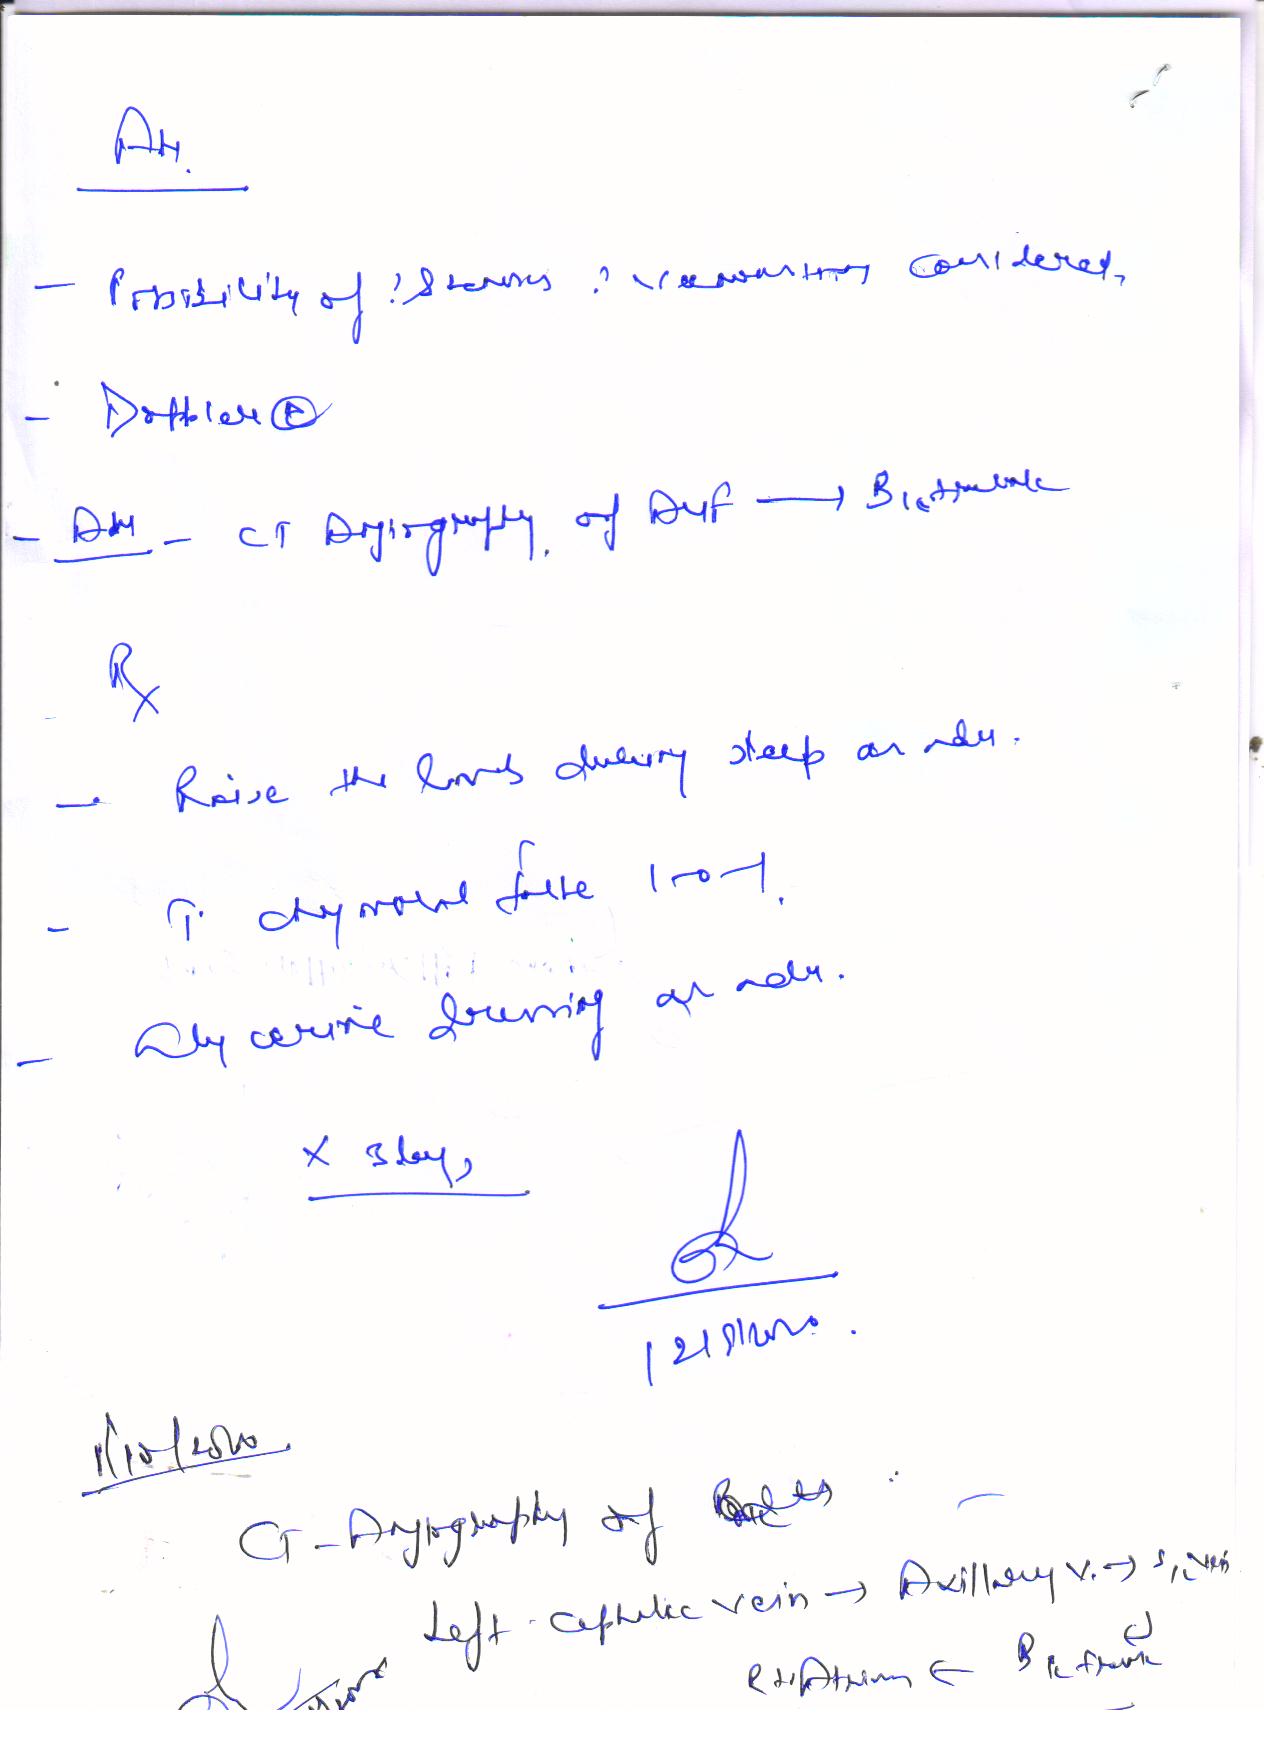 Adv.
- Possibility of ? Stenosis ? Venous considered,
- Doppler
- Adv - CT Angiography of AVF → Bc trunk
Rx
- Raise the limbs during sleep as adv.
- T. chymoral forte 1-0-1.
- Glycerine dressing as adv.
x 3 days
12/8/2020.
1/10/2020.
CT-Angiography of
Left cephalic vein → Axillary v. → S/c vein
Rt Atrium ← Bc trunk